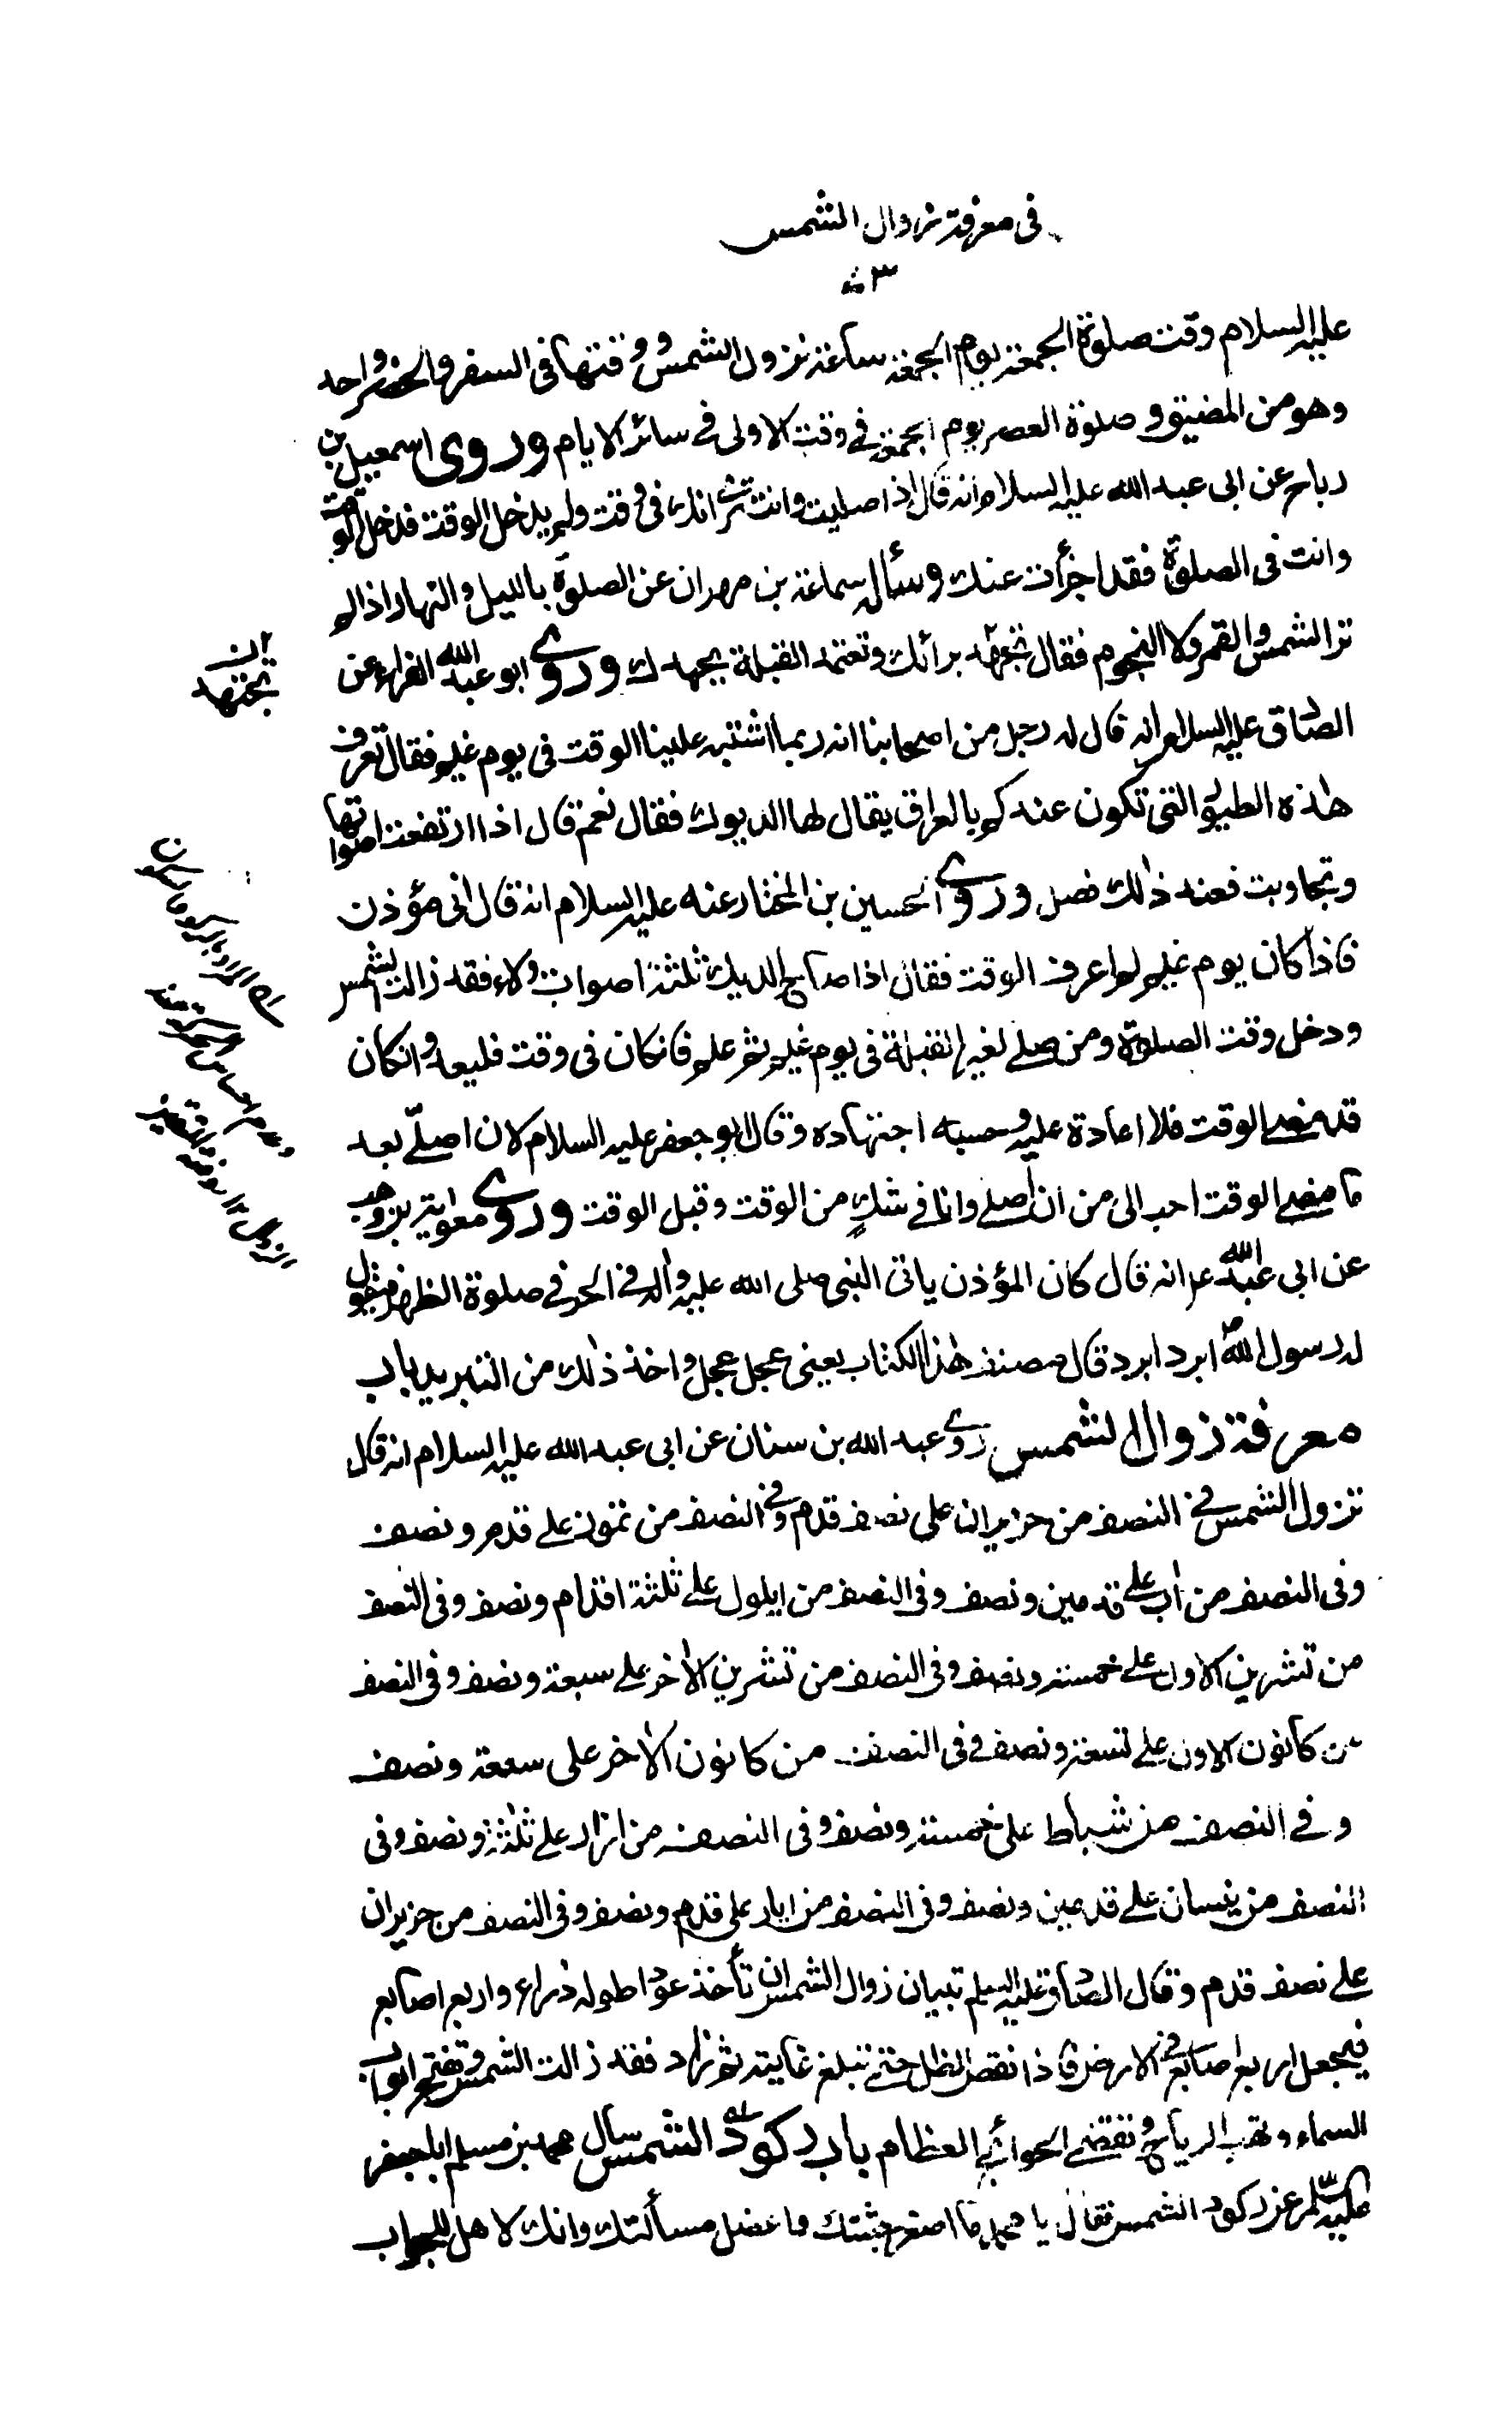 فى معرفة زوال الشمس
عليه السلام وقت صلوة الجمعة يوم الجمعة ساعة تزول الشمس ووقتها فى السفر والحضر واحد
وهو من المضيق وصلوة العصر يوم الجمعة فى وقت الاولى فى سائر الايام وروى اسمعيل بن
رباح عن ابى عبد الله عليه السلام انه قال اذا صليت وانت ترى انك فى وقت ولم يدخل الوقت فدخل الوقت
وانت فى الصلوة فقد اجزأت عنك وسأل سماعة بن مهران عن الصلوة بالليل والنهار اذا لم
تر الشمس والقمر ولا النجوم فقال تجتهد برأئك وتعتمد القبلة بجهدك وروى ابو عبد الله الفراء عن
الصادق عليه السلام انه قال له رجل من اصحابنا انه ربما اشتبه علينا الوقت فى يوم غيم فقال تعرف
هذه الطيور التى تكون عندكم بالعراق يقال لها الديوك فقال نعم قال اذا ارتفعت اصواتها
وتجاوبت فعند ذلك فصل وروى الحسين بن المختار عنه عليه السلام انه قال انى مؤذن
فاذا كان يوم غيم لم اعرف الوقت فقال اذا صاح الديك ثلثة اصوات ولاء فقد زالت الشمس
ودخل وقت الصلوة ومن صلى لغير القبلة فى يوم غيم ثم علم فانكان فى وقت فليعد وانكان
قد مضى الوقت فلا اعادة عليه وحسبه اجتهاده وقال ابو جعفر عليه السلام لان اصلّى بعد
ما مضى الوقت احب الى من ان اصلى وانا فى شكٍ من الوقت وقبل الوقت وروى معوية بن وهب
عن ابى عبد الله ع انه قال كان المؤذن ياتى النبى صلى الله عليه واله فى الحر فى صلوة الظهر فيقول
له رسول الله ص ابرد ابرد قال مصنف هذا الكتاب يعنى عجل عجل واخذ ذلك من التبريد باب
معرفة زوال الشمس روى عبد الله بن سنان عن ابى عبد الله عليه السلام انه قال
تزول الشمس فى النصف من حزيران على نصف قدم وفى النصف من تموز على قدم ونصف
وفى النصف من اب على قدمين ونصف وفى النصف من ايلول على ثلثة اقدام ونصف وفى النصف
من تشرين الاول على خمسة ونصف وفى النصف من تشرين الاخر على سبعة ونصف وفى النصف
من كانون الاول على تسعة ونصف وفى النصف من كانون الاخر على سبعة ونصف
وفى النصف من شباط على خمسة ونصف وفى النصف من ازار على ثلثة ونصف وفى
النصف من نيسان على قدمين ونصف وفى النصف من ايار على قدم ونصف وفى النصف من حزيران
على نصف قدم وقال الصادق عليه السلم تبيان زوال الشمس ان تأخذ عودا طوله ذراع واربع اصابع
فيجعل اربع اصابع فى الارض فاذا نقص الظل حتى يبلغ غايته ثم زاد فقد زالت الشمس وتفتح ابواب
السماء وتهب الرياح وتقضى الحوائج العظام باب ركود الشمس سال محمد بن مسلم ابا جعفر
عليه السلم عن ركود الشمس فقال يا محمد ما اصغر جثتك واعضل مسألتك وانك لاهل للجواب
ان
تجتهد